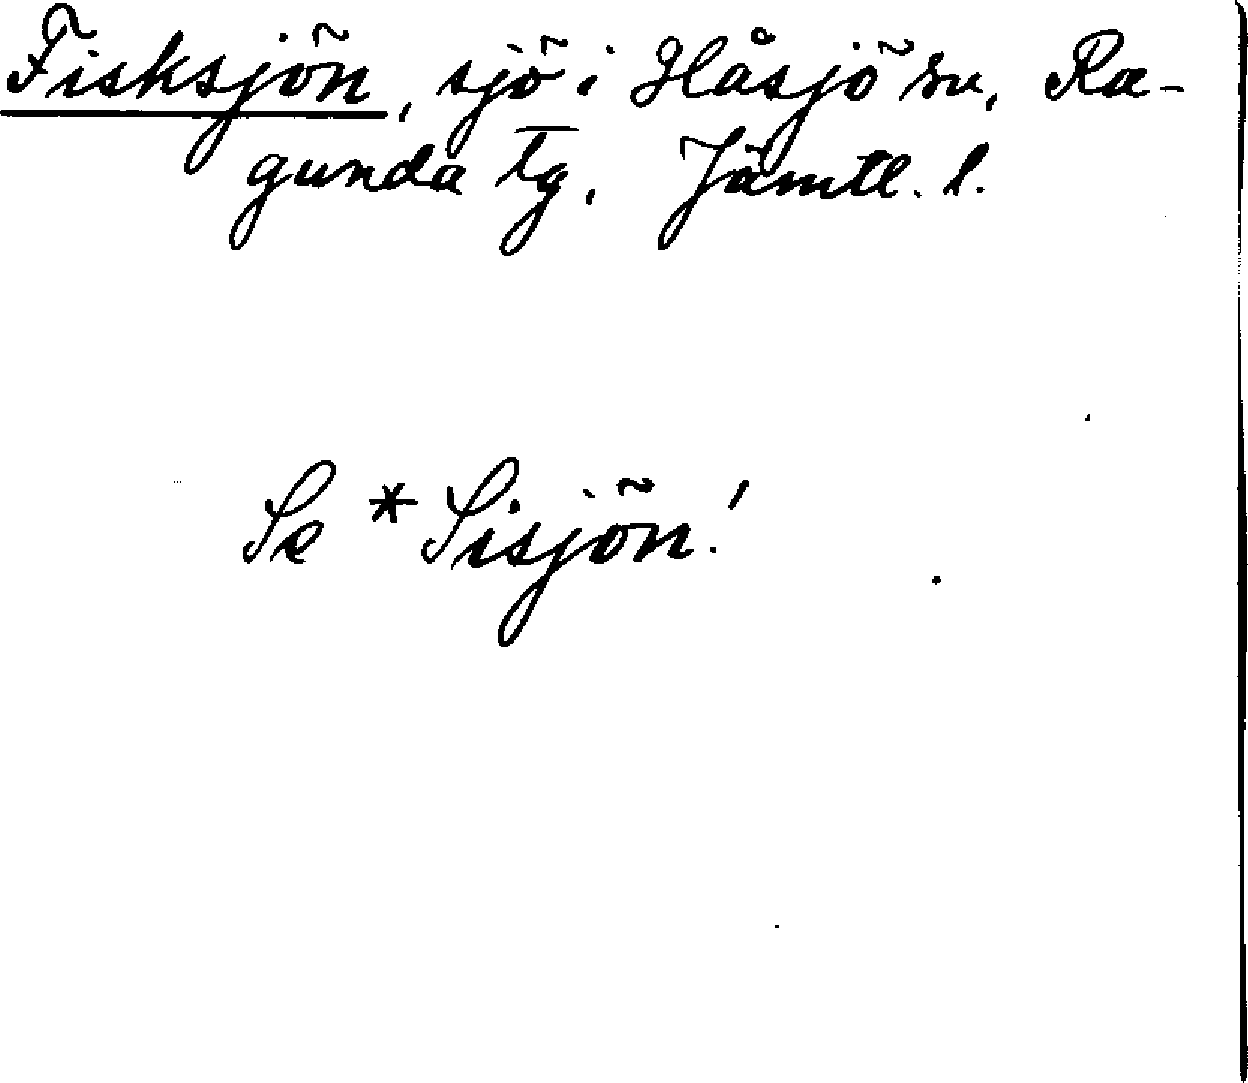 Fisksjön, sjö i Håsjö sn, Ra-
gunda tg, Jämtl. l.
Se *Sisjön!